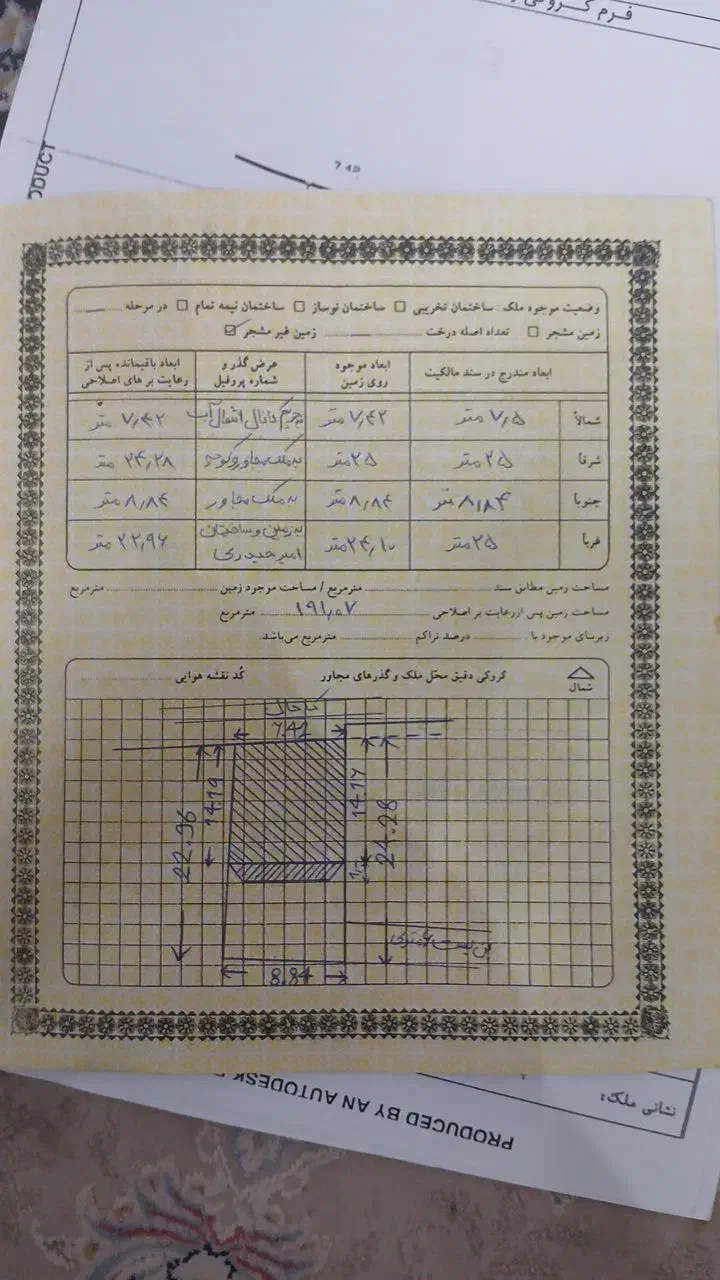 فرم کروکی
7.42
ODUCT
وضعیت موجود ملک: ساختمان تخریبی □ ساختمان نوساز □ ساختمان نیمه تمام □ در مرحله ............
زمین مشجر □ تعداد اصله درخت ............ زمین غیر مشجر ☑
ابعاد مندرج در سند مالکیت ابعاد موجود روی زمین عرض گذر و شماره پروفیل ابعاد باقیمانده پس از رعایت بر های اصلاحی
شمالاً ۷,۵ متر ۷,۴۲ متر به حریم کانال انتقال آب ۷,۴۲ متر
شرقا ۲۵ متر ۲۵ متر به ملک مجاور و کوچه ۲۴,۲۸ متر
جنوبا ۸,۸۴ متر ۸,۸۴ متر به ملک مجاور ۸,۸۴ متر
غربا ۲۵ متر ۲۴,۱۰ متر به زمین و ساختمان امیر حیدری ۲۲,۹۶ متر
مساحت زمین مطابق سند ............ مترمربع / مساحت موجود زمین ............ مترمربع
مساحت زمین پس از رعایت بر اصلاحی ۱۹۱,۰۷ مترمربع
زیربنای موجود با ............ درصد تراکم ............ مترمربع می‌باشد.
شمال
کروکی دقیق محل ملک و گذرهای مجاور
کُد نقشه هوایی ............
کانال
7.42
14.14
22.96
14.17
24.28
بن بست ۶ متری
8.84
نشانی ملک:
PRODUCED BY AN AUTODESK